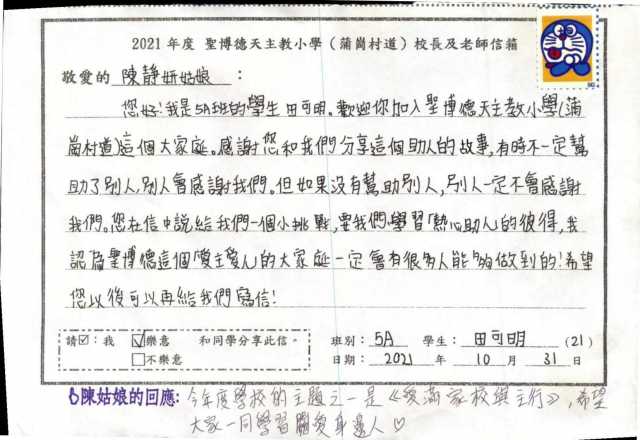 2021 年度 聖博德天主教小學（蒲崗村道）校長及老師信箱
敬愛的 陳靜妍姑娘 ：
您好!我是5A班的學生 田可明。歡迎你加入聖博德天主教小學(蒲
崗村道)這個大家庭。感謝您和我們分享這個助人的故事,有時不一定幫
助了別人,別人會感謝我們。但如果沒有幫助別人,別人一定不會感謝
我們。您在信中說給我們一個小挑戰,要我們學習「熱心助人」的彼得,我
認為聖博德這個「愛主愛人」的大家庭一定會有很多人能夠做到的!希望
您以後可以再給我們寫信!
請☑：我 ☑樂意 和同學分享此信。 班別： 5A 學生： 田可明 (21)
□不樂意 日期： 2021 年 10 月 31 日
陳姑娘的回應: 今年度學校的主題之一是《愛滿家校與主行》,希望
大家一同學習關愛身邊人♡